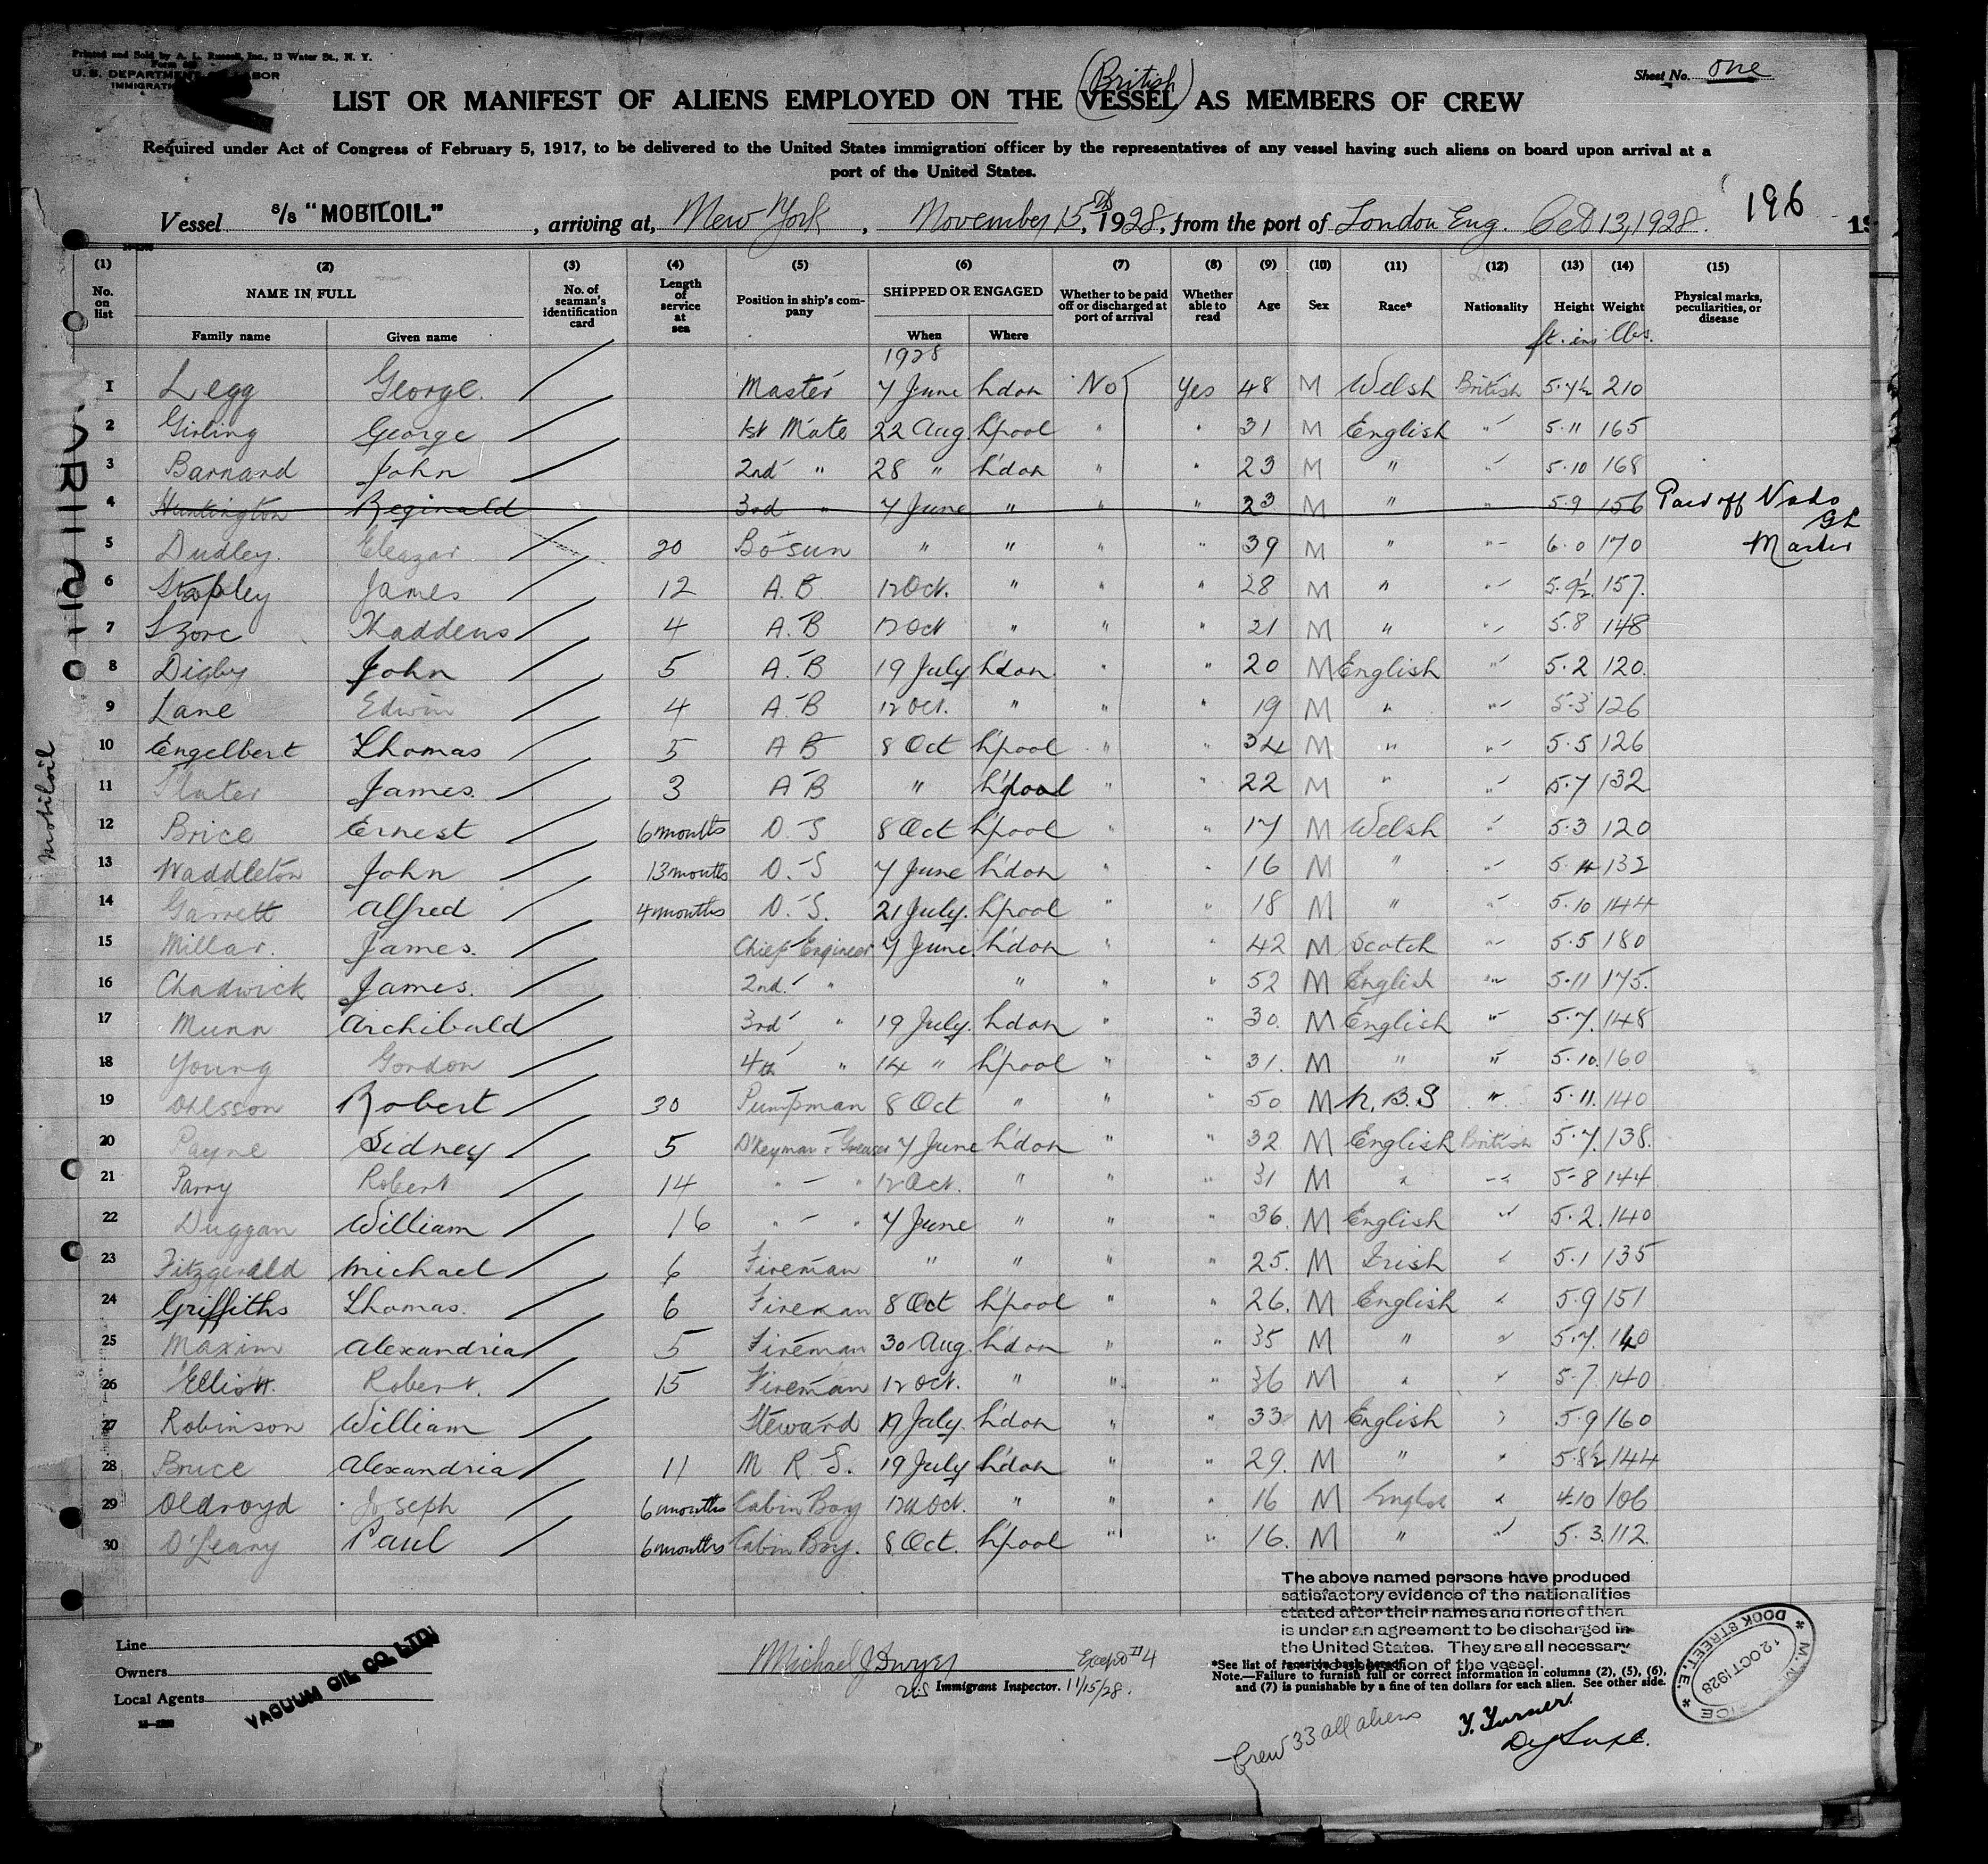 Printed and Sold by A. L. Russell, Inc., 13 Water St., N. Y.
Form
U. S. DEPARTMENT LABOR
IMMIGRATION
Sheet No. One
(British)
LIST OR MANIFEST OF ALIENS EMPLOYED ON THE VESSEL AS MEMBERS OF CREW
Required under Act of Congress of February 5, 1917, to be delivered to the United States immigration officer by the representatives of any vessel having such aliens on board upon arrival at a
port of the United States.
196
Vessel S/S "MOBILOIL", arriving at, New York, November 15th, 1928, from the port of London Eng. Oct 13, 1928. 19
(1) (2) (3) (4) (5) (6) (7) (8) (9) (10) (11) (12) (13) (14) (15)
No. on list NAME IN FULL No. of seaman's identification card Length of service at sea Position in ship's company SHIPPED OR ENGAGED Whether to be paid off or discharged at port of arrival Whether able to read Age Sex Race* Nationality Height Weight Physical marks, peculiarities, or disease
Family name Given name When Where ft. ins lbs.
1928
1 Legg George Master 7 June L'don No Yes 48 M Welsh British 5.7½ 210
2 Girling George 1st Mate 22 Aug. L'pool " " 31 M English " 5.11 165
3 Barnard John 2nd " 28 " L'don " " 23 M " " 5.10 168
4 Huntington Reginald 3rd " 7 June " " " 23 M " " 5.9 156 Paid off
5 Dudley. Eleazar 20 Bo'sun " " " " 39 M " " 6.0 170 Master
6 Stapley James 12 A.B 12 Oct. " " " 28 M " " 5.9½ 157.
7 Szorc Thaddeus 4 A.B 12 Oct " " " 21 M " " 5.8 148
8 Digby John 5 A.B 19 July L'don. " " 20 M English " 5.2 120.
9 Lane Edwin 4 A.B 12 Oct. " " " 19 M " " 5.3 126
10 Engelbert Thomas 5 A B 8 Oct L'pool " " 34 M " " 5.5 126
11 Slater James. 3 A B " L'pool " " 22 M " " 5.7 132
12 Brice Ernest 6 months O.S 8 Oct L'pool " 17 M Welsh " 5.3 120
13 Waddleton John 13 months O.S 7 June L'don " " 16 M " " 5. 132
14 Garrett Alfred 4 months O.S. 21 July. L'pool " " 18 M " " 5.10 144
15 Millar. James. Chief Engineer 7 June. L'don " " 42 M Scotch " 5.5 180
16 Chadwick James. 2nd. " " " " 52 M English " 5.11 175.
17 Munn Archibald 3rd " 19 July. L'don " " 30. M English " 5.7. 148
18 Young Gordon 4th " 14 " L'pool " " 31. M " " 5.10. 160
19 Ohlsson Robert 30 Pumpman 8 Oct " " " 50 M N.B.S " 5.11. 140
20 Payne Sidney 5 D'keyman & Greaser 7 June L'don " " 32. M English British 5.7. 138.
21 Parry Robert 14 " - " 12 Oct. " " " 31 M " " 5-8 144
22 Duggan William 16 " - " 7 June " " " 36. M English " 5.2. 140
23 Fitzgerald Michael 6 Fireman " " " " 25. M Irish " 5.1 135
24 Griffiths Thomas. 6 Fireman 8 Oct L'pool " " 26. M English " 5.9 151
25 Maxim Alexandria 5 Fireman 30 Aug. L'don " " 35 M " " 5.7. 140
26 Elliott. Robert. 15 Fireman 12 Oct. " " " 36 M " " 5.7 140
27 Robinson William Steward 19 July. L'don " " 33 M English " 5.9 160
28 Bruce Alexandria 11 M R S. 19 July L'don " " 29. M " " 5.8½ 144
29 Oldroyd Joseph 6 months Cabin Boy 12th Oct. " " 16 M English " 4.10 106
30 O'Leary Paul 6 months Cabin Boy. 8 Oct. L'pool " " 16. M " " 5.3. 112.
Mobiloil
The above named persons have produced
satisfactory evidence of the nationalities
stated after their names and none of them
is under an agreement to be discharged in
the United States. They are all necessary
operation of the vessel.
Line
Owners
Local Agents
VACUUM OIL CO. LTD.
Michael J Dwyer Except #4
Immigrant Inspector. 11/15/28.
*See list of races on back hereof.
Note.—Failure to furnish full or correct information in columns (2), (5), (6),
and (7) is punishable by a fine of ten dollars for each alien. See other side.
DOCK STREET, E. 12 OCT 1928
Crew 33 all aliens
T. Turner
Dy Supt.